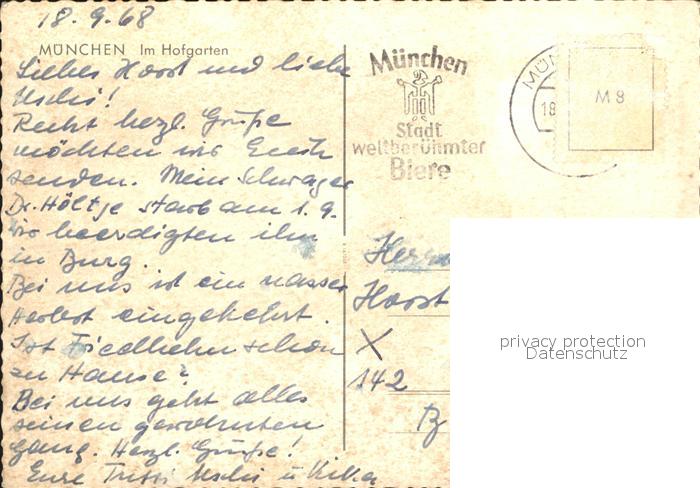 18.9.68
MÜNCHEN Im Hofgarten
Liebes Horst und liebe
Uschi!
Recht herzl. Grüße
möchten wir Euch
senden. Mein Schwager
Dr. Höltje starb am 1.9.
wir beerdigten ihn
in Burg.
Bei uns ist ein nasser
Herbst eingekehrt.
Ist Friedhelm schon
zu Hause?
Bei uns geht alles
seinen gewohnten
Gang. Herzl. Grüße!
Eure Uschi u
München
Stadt
weltberühmter
Biere
MÜN
18
M 8
Herrn
Horst
X
142
B
privacy protection
Datenschutz